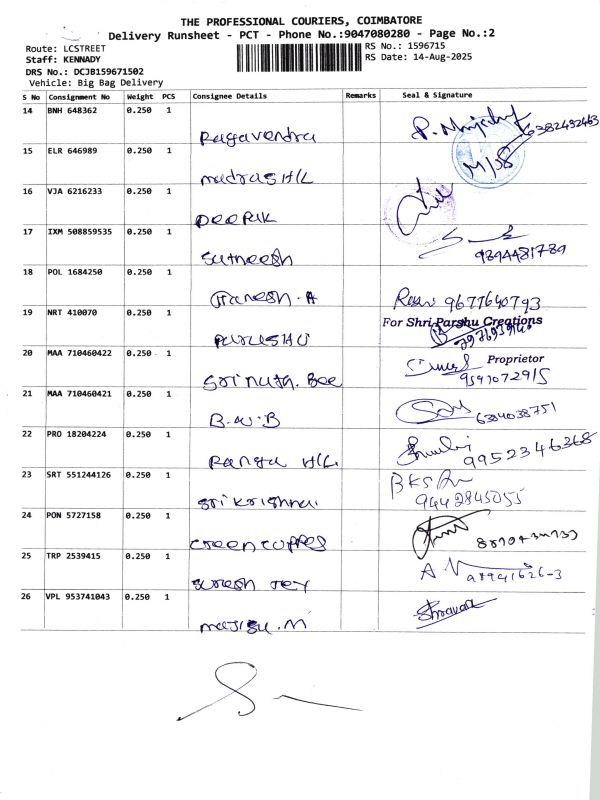 THE PROFESSIONAL COURIERS, COIMBATORE
Delivery Runsheet - PCT - Phone No.:9047080280 - Page No.:2
Route: LCSTREET
RS No.: 1596715
Staff: KENNADY
RS Date: 14-Aug-2025
DRS No.: DCJB159671502
Vehicle: Big Bag Delivery
S No Consignment No Weight PCS Consignee Details Remarks Seal & Signature
14 BNH 648362 0.250 1
Ragavendra 6382492463
15 ELR 646989 0.250 1
madras H/L
16 VJA 6216233 0.250 1
Deepak
17 IXM 508859535 0.250 1
Sutheesh 9394481789
18 POL 1684250 0.250 1
Ganesh. A 9677640793
19 NRT 410070 0.250 1
For Shri Parshu Creations
Purushu
20 MAA 710460422 0.250 1
Proprietor
Srinath. Bee 9597072915
21 MAA 710460421 0.250 1
B.W.B 6384038751
22 PRO 18204224 0.250 1
Ranga H/L. 9952346368
23 SRT 551244126 0.250 1
Srikrishnai 9442845055
24 PON 5727158 0.250 1
Green
25 TRP 2539415 0.250 1
Suresh Jey
26 VPL 953741043 0.250 1